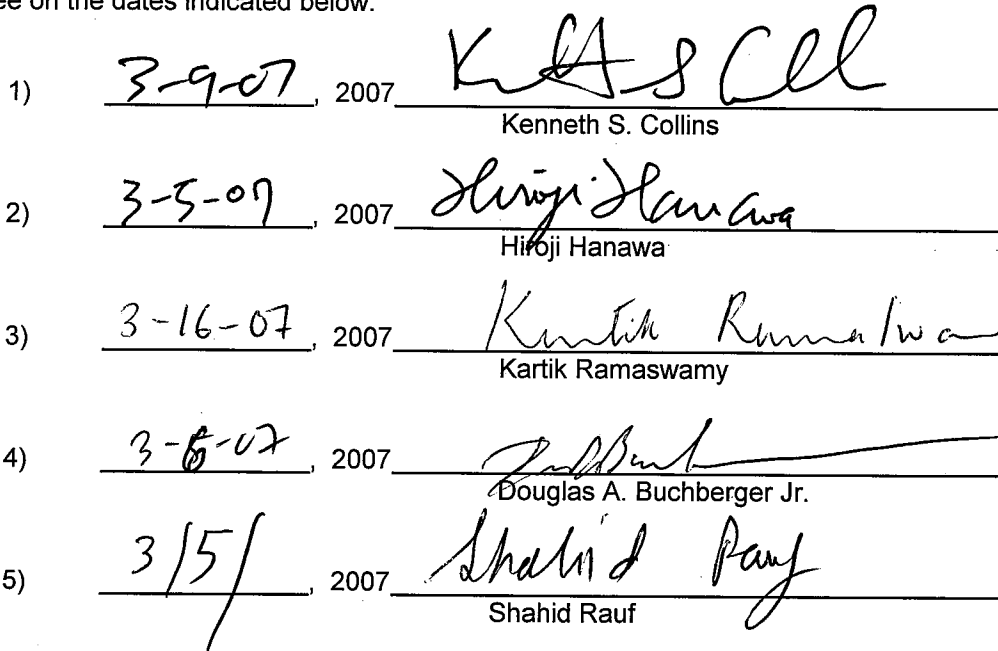 ee on the dates indicated below.
1) 3-9-07, 2007 Kenneth S. Collins
Kenneth S. Collins
2) 3-5-07, 2007 Hiroji Hanawa
Hiroji Hanawa
3) 3-16-07, 2007 Kartik Ramaswa
Kartik Ramaswamy
4) 3-07, 2007
Douglas A. Buchberger Jr.
5) 3/5/, 2007 Shahid Rauf
Shahid Rauf